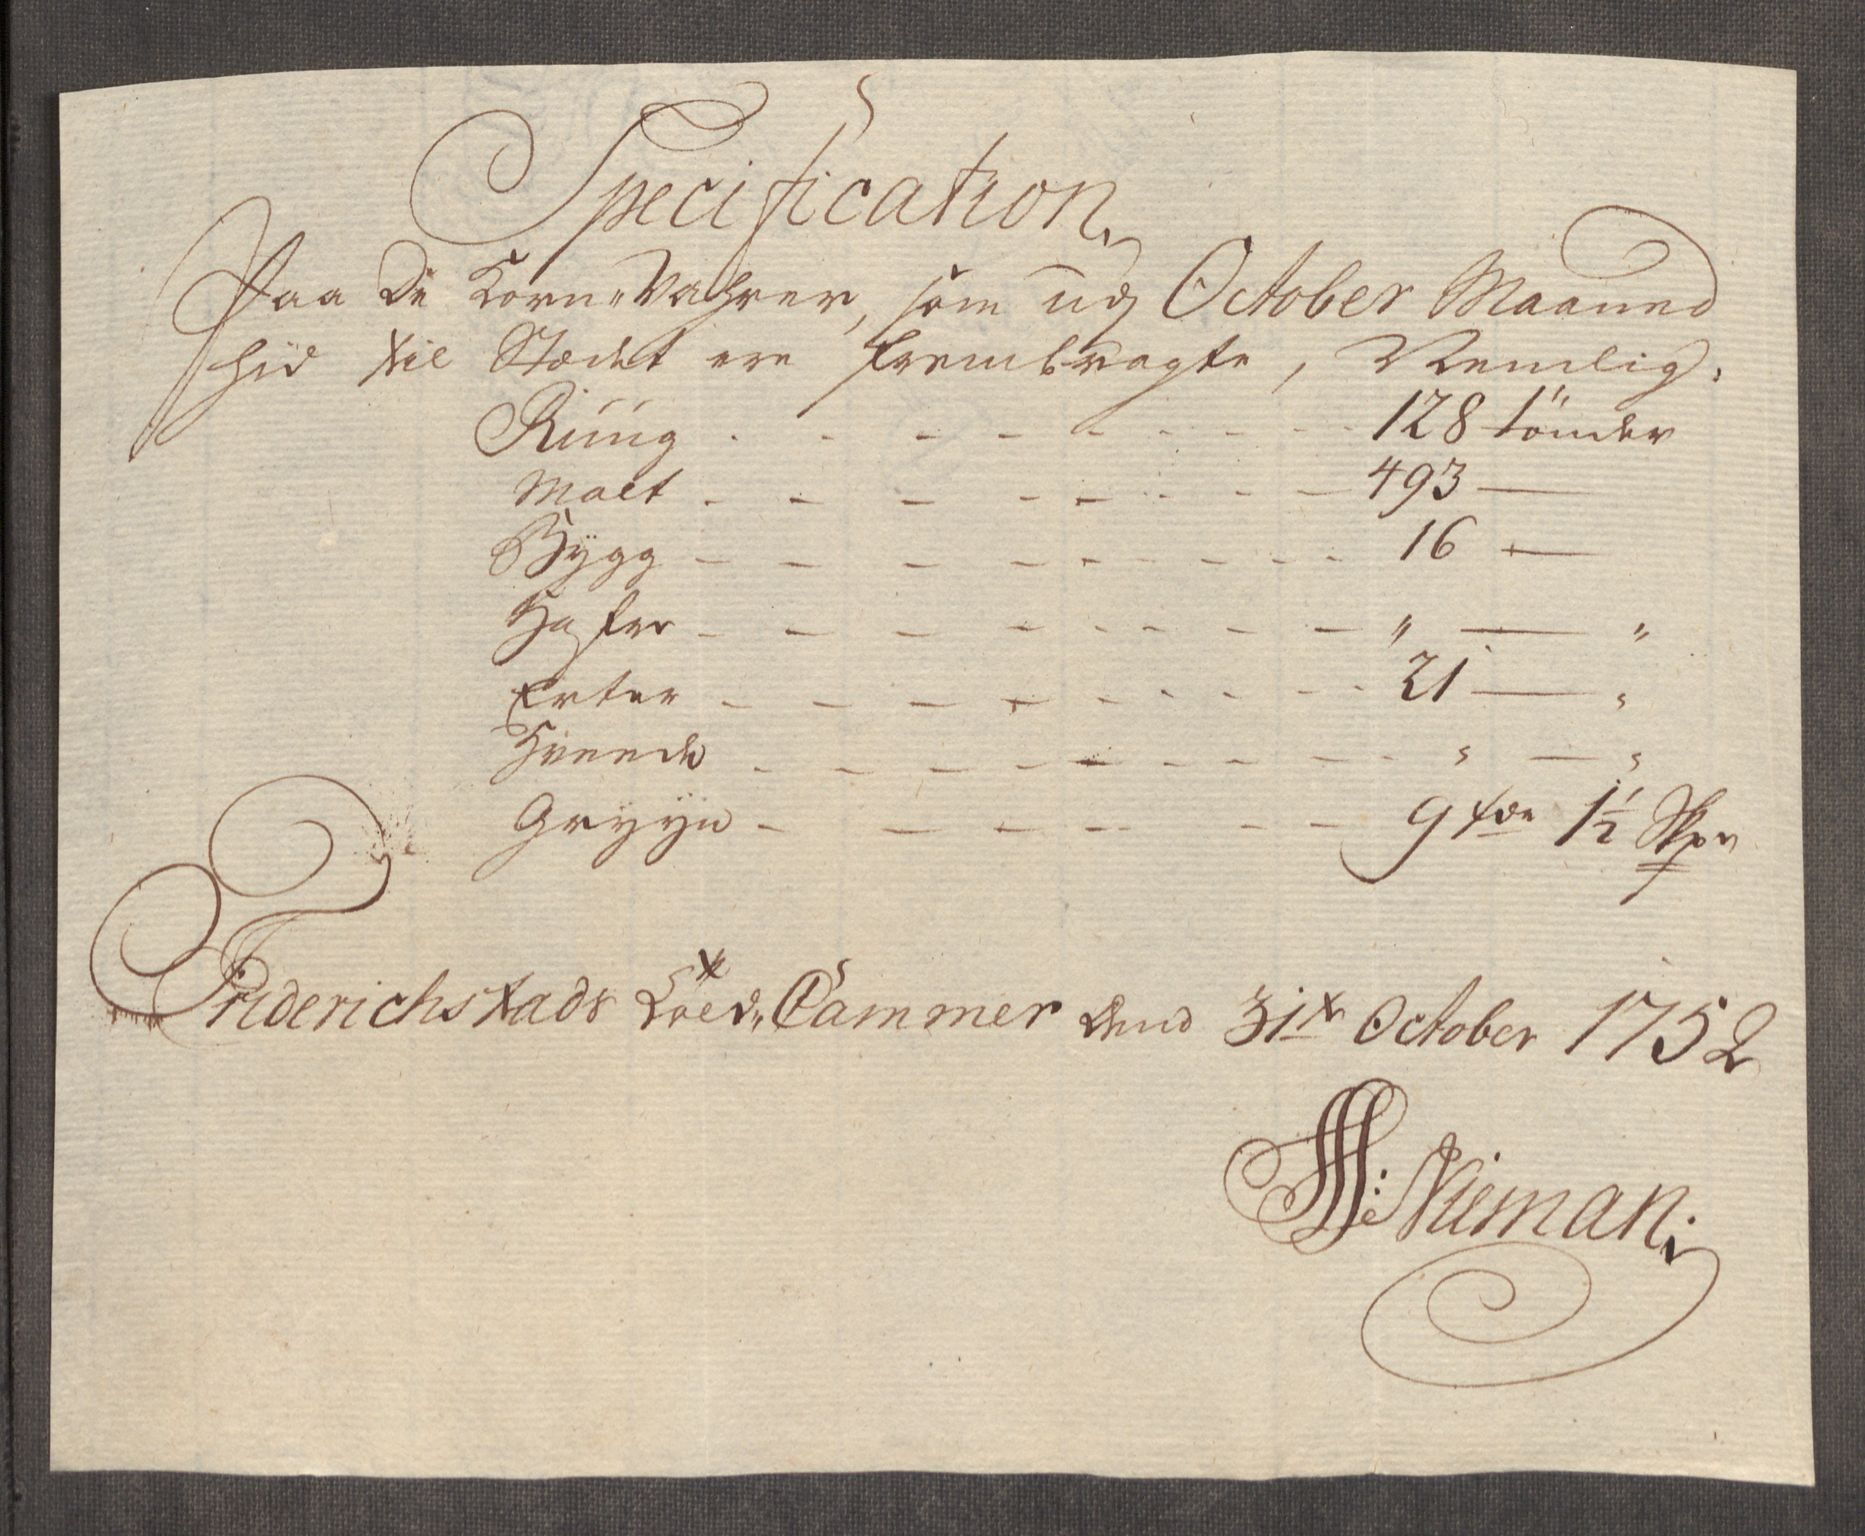 Specification
Paa De Korn-Vahrer, som udj October Maaned
hid til Stædet ere frembragte, Nemlig.
Rüüg - - - - - - - - - 128 tönder
Malt - - - - - - - - - 493 —
Bÿgg - - - - - - - - - 16 —
Hafre - - - - - - - - - " — "
Erter - - - - - - - - - 21 — "
Hveede - - - - - - - - - " — "
Gryyn - - - - - - - - - 9 tdr 1½ Skpr
Friderichstads Told Cammer dend 31te October 1752
Nieman.